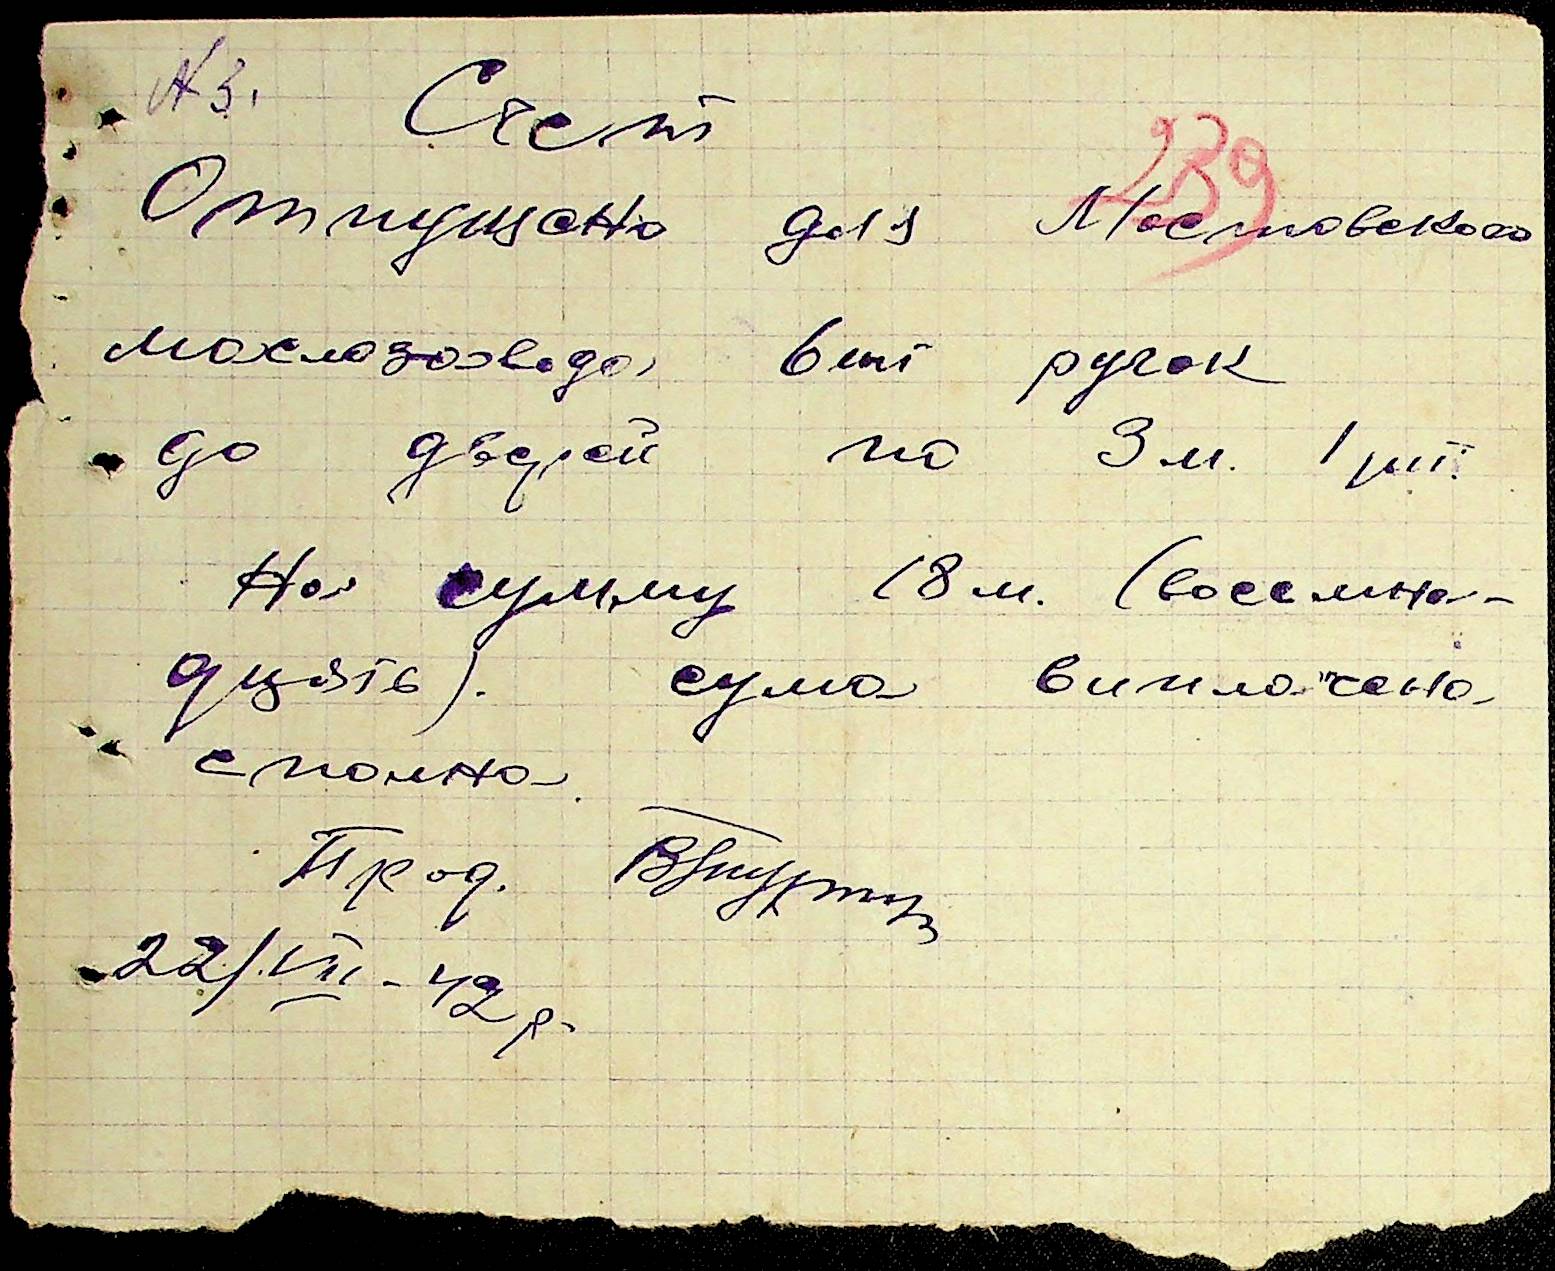 N 3. Счет
239
Отпущено для Мостовского
маслозавода 6 шт ручок
до дверей по 3 м. 1 шт.
На сумму 18 м. (восемна-
дцять). сума виплачена
сполна.
Прод.
22/VII - 42 р.